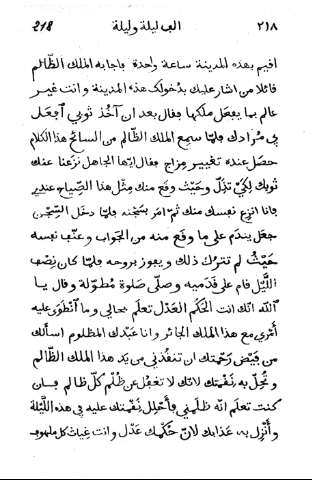 ٢١٨ الف ليلة وليلة 218
اقيم بهذه المدينة ساعة واحدة فاجابه الملك الظالم
قائلا من اشار عليك بدخولك هذه المدينة وانت غير
عالم بما يفعل ملكها فقال بعد ان آخذ ثوبي أجعل
بي مرادك فلما سمع الملك الظالم من السائح هذا الكلام
حصل عنده تغيير مزاج فقال ايها الجاهل نزعنا عنك
ثوبك لكي تذل وحيث وقع منك مثل هذا الصياح عندي
فانا انزع نفسك منك ثم امر بسجنه فلما دخل السجن
جعل يندم على ما وقع منه من الجواب وعنف نفسه
حيث لم تترك ذلك ويفوز بروحه فلما كان نصف
الليل قام على قدميه وصلى صلوة مطولة وقال يا
الله انك انت الحكم العدل تعلم بحالي وما انطوى عليه
أمري مع هذا الملك الجائر وانا عبدك المظلوم اسألك
من فيض رحمتك ان تنقذني من يد هذا الملك الظالم
وتحل به نقمتك لانك لا تغفل عن ظلم كل ظالم فان
كنت تعلم انه ظلمني فأحلل نقمتك عليه في هذه الليلة
وأنزل به عذابك لان حكمك عدل وانت غياث كل ملهوف